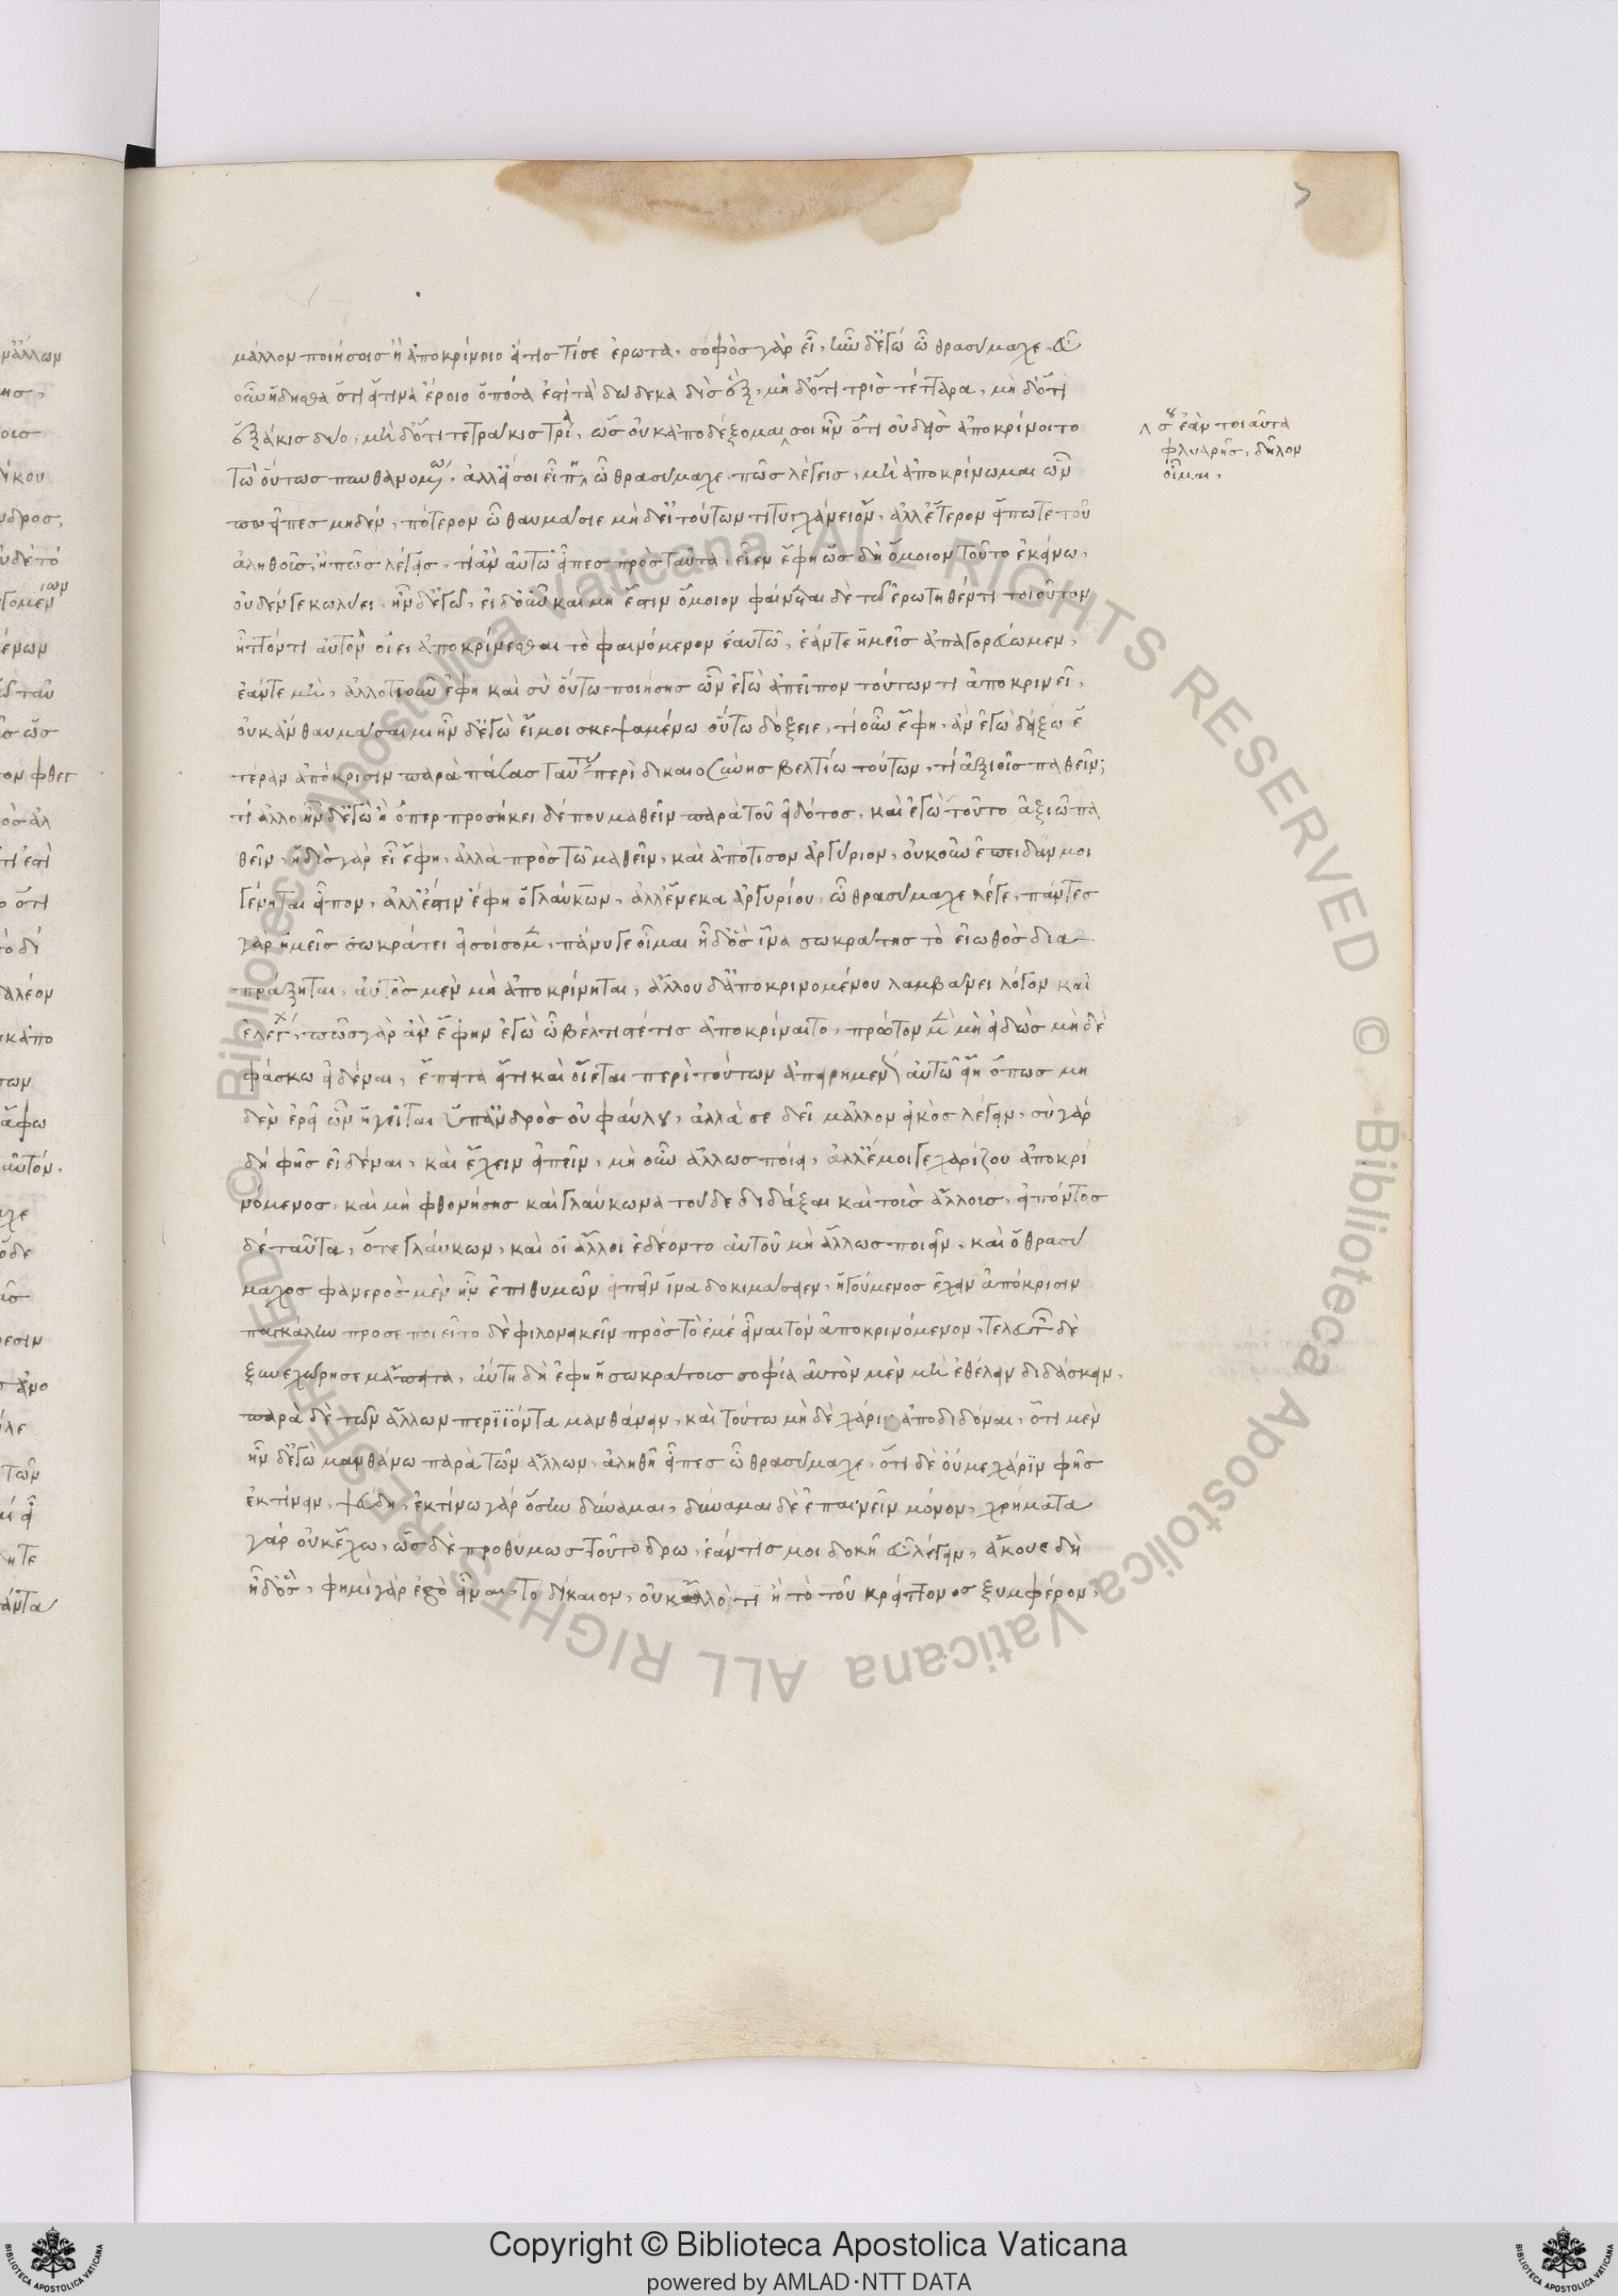 μᾶλλον ποιήσοις ἢ ἀποκρίνοιο εἴτις τί σε ἐρωτᾶ. σοφὸς γὰρ εἶ, ἦν δ' ἐγώ ὦ θρασύμαχε. εὖ
οὖν ἤδησθα ὅτι εἴτινα ἔροιο ὁπόσα ἐστὶ τὰ δώδεκα δὶς ἓξ, μὴ δ' ὅτι τρὶς τέτταρα, μὴ δ' ὅτι
ἑξάκις δύο, μὴ δ' ὅτι τετράκις τρία, ὡς οὐκ ἀποδέξομαι σοι ἦν ὅτι οὐδεὶς ἀποκρίνοιτο
τῶ οὕτως πυνθανομένω, ἀλλ' εἴ σοι εἶπεν ὦ θρασύμαχε, πῶς λέγεις, μὴ ἀποκρίνωμαι ὧν
προεῖπες μηδέν, πότερον ὦ θαυμάσιε μὴ δ' εἰ τούτων τι τυγχάνει ὄν, ἀλλ' ἕτερον εἴπω τι τοῦ
ἀληθοῦς, ἢ πῶς λέγεις, τί ἂν αὐτῶ εἶπες πρὸς ταῦτα, εἶεν ἔφη ὡς δὴ ὅμοιον τοῦτο ἐκείνω,
οὐδέν γε κωλύει, ἦν δ' ἐγώ, εἰ δ' οὖν καὶ μὴ ἔστιν ὅμοιον φαίνεται δὲ τῶ ἐρωτηθέντι τοιοῦτον
ἧττόν τι αὐτὸν οἴει ἀποκρίνεσθαι τὸ φαινόμενον ἑαυτῶ, ἐάντε ἡμεῖς ἀπαγορεύωμεν,
ἐάντε μὴ, ἄλλο τι οὖν ἔφη καὶ σὺ οὕτω ποιήσης ὧν ἐγὼ ἀπεῖπον τούτων τι ἀποκρινεῖ,
οὐκ ἂν θαυμάσαιμι ἦν δ' ἐγὼ εἴ μοι σκεψαμένω οὕτω δόξειε, τί οὖν ἔφη, ἂν ἐγὼ δείξω ἑ
τέραν ἀπόκρισιν παρὰ πάσας ταύτας περὶ δικαιοσύνης βελτίω τούτων, τί ἀξιοῖς παθεῖν;
τί ἄλλο ἦν δ' ἐγὼ ἢ ὅπερ προσήκει δέ που μαθεῖν παρὰ τοῦ εἰδότος, καὶ ἐγὼ τοῦτο ἀξιῶ πα
θεῖν, ἡδὺς γὰρ εἶ ἔφη, ἀλλὰ πρὸς τῶ μαθεῖν, καὶ ἀπότισον ἀργύριον, οὐκοῦν ἐπειδάν μοι
γένηται εἶπον, ἀλλ' ἔστιν ἔφη ὁ γλαύκων, ἀλλ' ἕνεκα ἀργυρίου, ὦ θρασύμαχε λέγε, πάντες
γὰρ ἡμεῖς σωκράτει εἰσοίσομεν, πάνυ γε οἶμαι ἦ δ' ὃς ἵνα σωκράτης τὸ εἰωθὸς δια
πράξηται, αὐτὸς μὲν μὴ ἀποκρίνηται, ἄλλου δ' ἀποκρινομένου λαμβάνει λόγον καὶ
ἐλέγχη, πῶς γὰρ ἂν ἔφην ἐγὼ ὦ βέλτιστέ τις ἀποκρίναιτο, πρῶτον μὲν μὴ εἰδὼς μὴ δὲ
φάσκω εἰδέναι, ἔπειτα εἴ τι καὶ οἴεται περὶ τούτων ἀπειρημένον αὐτῶ εἴη ὅπως μη
δὲν ἐρεῖ ὧν ἡγεῖται ὑπ' ἀνδρὸς οὐ φαύλου, ἀλλὰ σε δεῖ μᾶλλον εἰκὸς λέγειν, σὺ γὰρ
δὴ φῂς εἰδέναι, καὶ ἔχειν εἰπεῖν, μὴ οὖν ἄλλως ποίει, ἀλλ' ἐμοί γε χαρίζου ἀποκρι
νόμενος, καὶ μὴ φθονήσης καὶ γλαύκωνα τόνδε διδάξαι καὶ τοὺς ἄλλους, εἰπόντος
δέ ταῦτα, ὅτε γλαύκων, καὶ οἱ ἄλλοι ἐδέοντο αὐτοῦ μὴ ἄλλως ποιεῖν, καὶ ὁ θρασύ
μαχος φανερὸς μὲν ἦν ἐπιθυμῶν εἰπεῖν ἵνα δοκιμάσειεν, ἡγούμενος ἔχειν ἀπόκρισιν
παγκάλην προσεποιεῖτο δὲ φιλονεικεῖν πρὸς τὸ ἐμὲ εἶναι τὸν ἀποκρινόμενον, τελευτῶν δὲ
ξυνεχώρησε κἄπειτα, αὕτη δὴ ἔφη ἡ σωκράτους σοφία αὐτὸν μὲν μὴ ἐθέλειν διδάσκειν,
παρὰ δὲ τῶν ἄλλων περϊϊόντα μανθάνειν, καὶ τούτω μὴ δὲ χάριν ἀποδιδόναι, ὅτι μὲν
ἦν δ' ἐγὼ μανθάνω παρὰ τῶν ἄλλων, ἀληθῆ εἶπες ὦ θρασύμαχε, ὅτι δὲ οὔ με χάριν φῂς
ἐκτίνειν, ψεύδη, ἐκτίνω γὰρ ὅσην δύναμαι, δύναμαι δὲ ἐπαινεῖν μόνον, χρήματα
γὰρ οὐκ ἔχω, ὡς δὲ προθύμως τοῦτο δρῶ, ἐάν τις μοι δοκῆ εὖ λέγειν, ἄκουε δὴ
ἦ δ' ὅς, φημὶ γὰρ ἐγὼ εἶναι το δίκαιον, οὐκ ἄλλό τι ἢ τὸ τοῦ κρείττονος ξυμφέρον,
σου ἐὰν τοιαῦτα
φλυαρῆς, δῆλον
οἶμαι,
© Biblioteca Apostolica Vaticana ALL RIGHTS RESERVED © Biblioteca Apostolica Vaticana ALL RIGHTS RESERVED
Copyright © Biblioteca Apostolica Vaticana
powered by AMLAD·NTT DATA